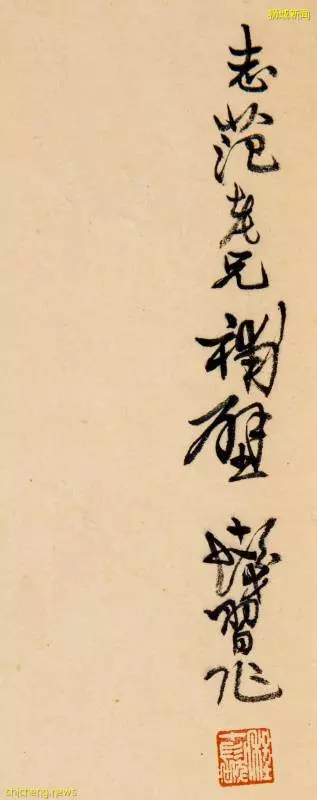 狮城新闻
志范老兄補壁十髮習作
shicheng.news